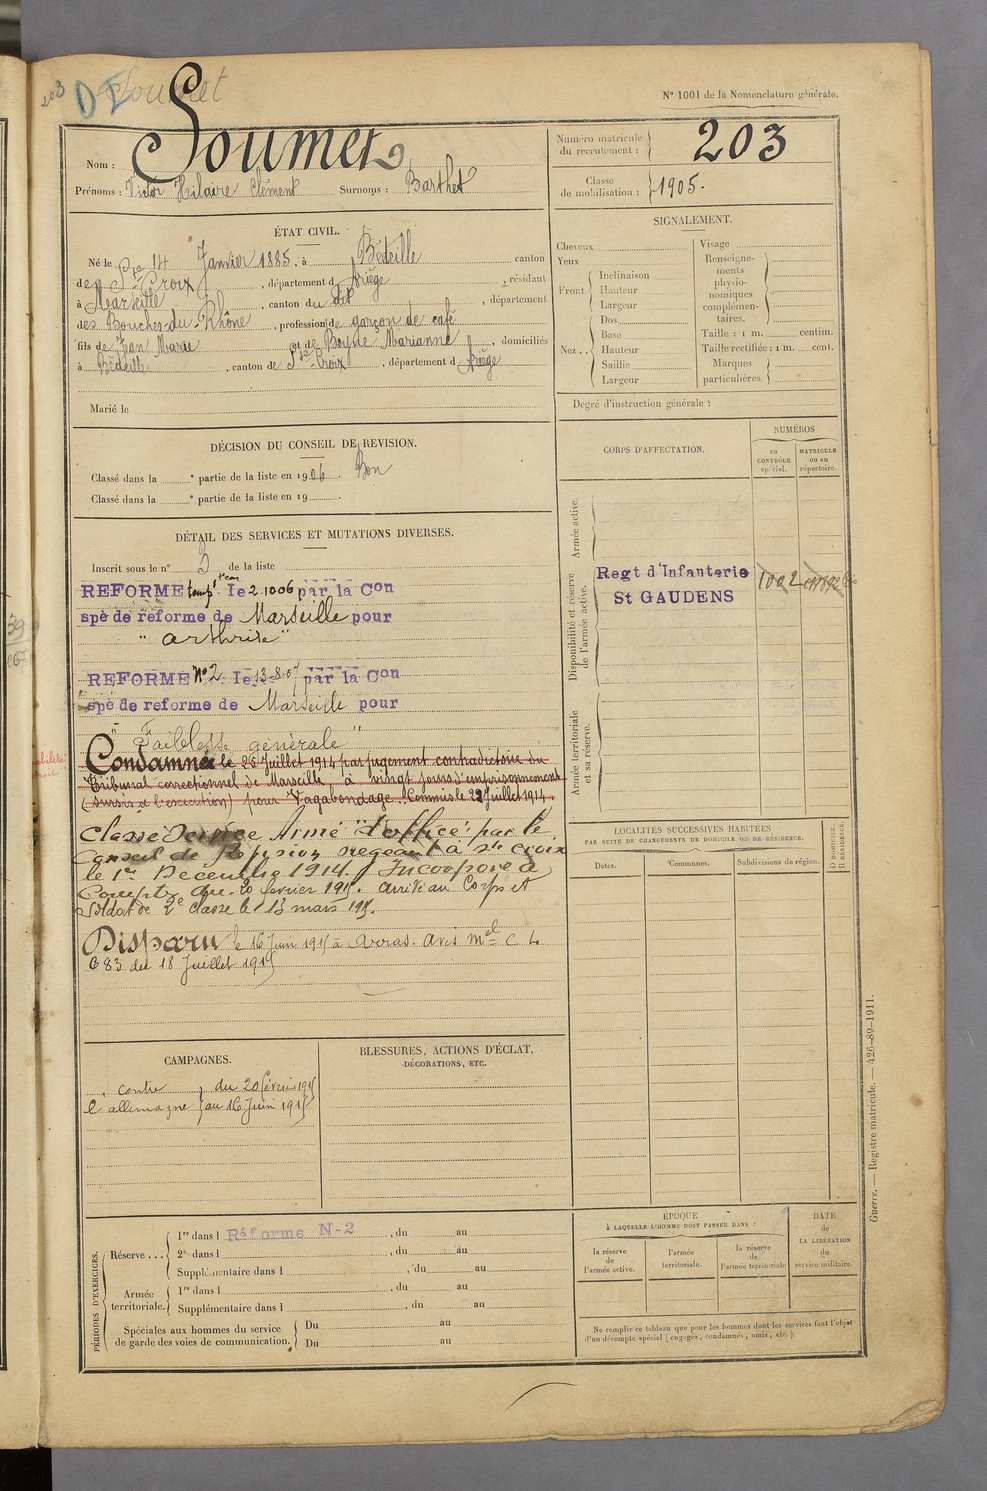 203 Soumet
N° 1001 de la Nomenclature générale.
Nom : Soumet
Prénoms : Victor Hilaire Clément Surnoms : Barthet
Numéro matricule du recrutement : 203
Classe de mobilisation : 1905.
ÉTAT CIVIL.
Né le 14 Janvier 1885, à Bédeille canton
de Ste Croix, département d Ariège, résidant
à Marseille, canton du dit, département
des Bouches-du-Rhône, profession de garçon de café
fils de Jean Marie et de Boyne Marianne, domiciliés
à Bédeille, canton de Ste Croix, département d Ariège
Marié le
SIGNALEMENT.
Cheveux
Yeux
Front. Inclinaison
Hauteur
Largeur
Nez .. Dos
Base
Hauteur
Saillie
Largeur
Visage
Renseignements physionomiques complémentaires.
Taille : 1 m. centim.
Taille rectifiée : 1 m. cent.
Marques particulières.
Degré d'instruction générale :
DÉCISION DU CONSEIL DE REVISION.
Classé dans la e partie de la liste en 1906. Bon
Classé dans la e partie de la liste en 19
DÉTAIL DES SERVICES ET MUTATIONS DIVERSES.
Inscrit sous le n° 3 de la liste
REFORME temp. le 2.10 06 par la Con
spé de réforme de Marseille pour
" arthrite "
REFORME N° 2 le 13-8-07 par la Con
spé de reforme de Marseille pour
" Faiblesse générale "
Condamné le 25 Juillet 1914 par jugement contradictoire du
Tribunal correctionnel de Marseille à vingt jours d'emprisonnement
(sursis à l'exécution) pour Vagabondage. Commis le 22 Juillet 1914.
Classé Service Armé "d'office" par le
Conseil de Révision siégeant à Ste Croix
le 1er Décembre 1914. Incorporé à
Compter du 20 février 1915. arrivé au Corps et
Soldat de 2e classe le 13 mars 1915.
Disparu le 16 Juin 1915 à Arras. Avis mel C L
683 du 18 Juillet 1915
CORPS D'AFFECTATION.
NUMÉROS
au CONTRÔLE spécial.
MATRICULE ou au répertoire.
Armée active.
Disponibilité et réserve de l'armée active.
Regt d'Infanterie 1002
St GAUDENS
Armée territoriale et sa réserve.
LOCALITÉS SUCCESSIVES HABITÉES
PAR SUITE DE CHANGEMENTS DE DOMICILE OU DE RÉSIDENCE.
Dates. Communes. Subdivisions de région. D DOMICILE, R RÉSIDENCE.
CAMPAGNES.
contre l'allemagne du 20 février 1915
au 16 Juin 1915
BLESSURES, ACTIONS D'ÉCLAT,
DÉCORATIONS, ETC.
PÉRIODES D'EXERCICES.
Réserve ... 1re dans l Réforme N-2, du au
2e dans l , du au
Supplémentaire dans l , du au
Armée territoriale. 1re dans l , du au
Supplémentaire dans l , du au
Spéciales aux hommes du service de garde des voies de communication. Du au
Du au
ÉPOQUE
À LAQUELLE L'HOMME DOIT PASSER DANS :
la réserve de l'armée active.
l'armée territoriale.
la réserve de l'armée territoriale
DATE de LA LIBÉRATION du service militaire.
Ne remplir ce tableau que pour les hommes dont les services font l'objet
d'un décompte spécial (engagés, condamnés, omis, etc.).
Guerre. — Registre matricule. — 426-89-1911.